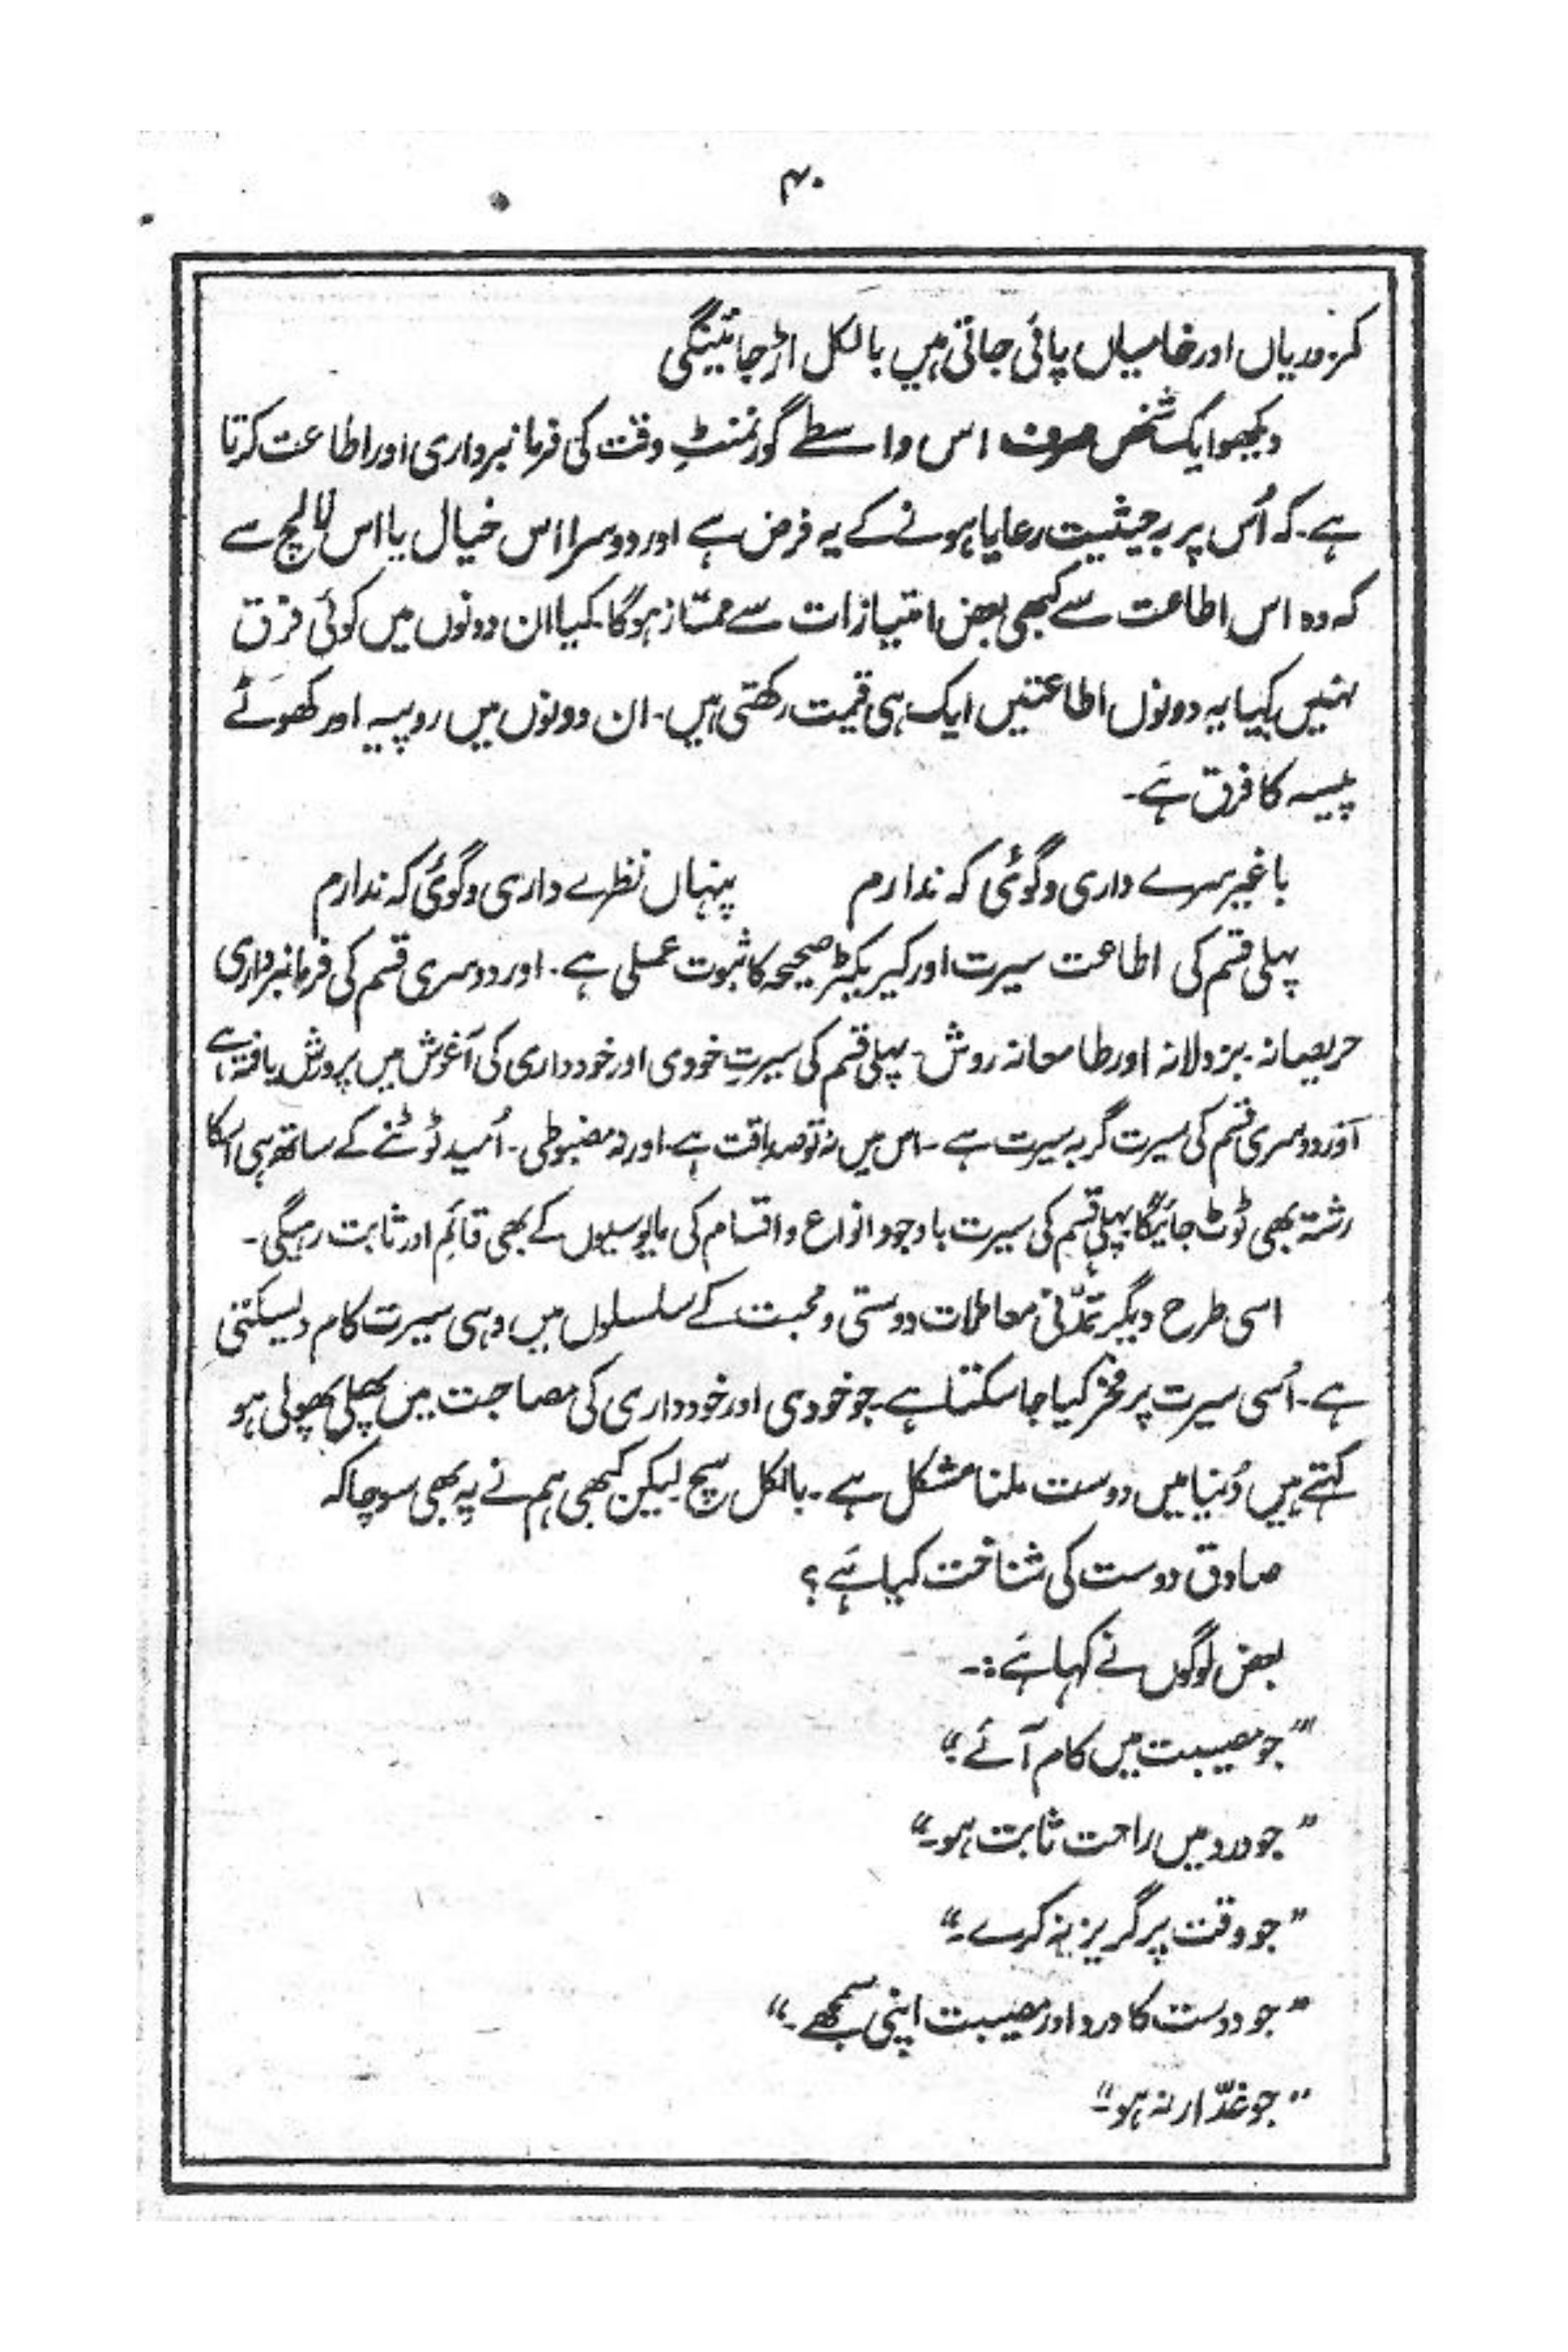 ۴۰
کمزوریاں اور خامیاں پائی جاتی ہیں بالکل اڑ جائینگی
دیکھو ایک شخص صرف اس واسطے گورنمنٹِ وقت کی فرمانبرداری اور اطاعت کرتا
ہے۔ کہ اُس پر بہ حیثیت رعایا ہونے کے یہ فرض ہے اور دوسرا اس خیال یا اس لالچ سے
کہ وہ اس اطاعت سے کبھی بعض امتیازات سے ممتاز ہوگا۔ کیا ان دونوں میں کوئی فرق
نہیں۔ کیا یہ دونوں اطاعتیں ایک ہی قیمت رکھتی ہیں۔ ان دونوں میں روپیہ اور کھوٹے
پیسہ کا فرق ہے۔
با غیر سرے داری و گوئی کہ ندارم پنہاں نظرے داری و گوئی کہ ندارم
پہلی قسم کی اطاعت سیرت اور کیریکٹر صحیحہ کا ثبوت عملی ہے۔ اور دوسری قسم کی فرمانبرداری
حریصانہ۔ بزدلانہ اور طامعانہ روش۔ پہلی قسم کی سیرتِ خودی اور خودداری کی آغوش میں پرورش یافتہ ہے
اور دوسری قسم کی سیرت گربہ سیرت ہے۔ اس میں نہ تو صداقت ہے۔ اور نہ مضبوطی۔ اُمید ٹوٹنے کے ساتھ ہی اسکا
رشتہ بھی ٹوٹ جائیگا پہلی قسم کی سیرت باوجود انواع و اقسام کی مایوسیوں کے بھی قائم اور ثابت رہیگی۔
اسی طرح دیگر تمدّنی معاملات دوستی و محبت کے سلسلوں میں وہی سیرت کام دیسکتی
ہے۔ اُسی سیرت پر فخر کیا جا سکتا ہے۔ جو خودی اور خودداری کی مصاحبت میں پھلی پھولی ہو
کہتے ہیں دُنیا میں دوست ملنا مشکل ہے۔ بالکل سچ لیکن کبھی ہم نے یہ بھی سوچا کہ
صادق دوست کی شناخت کیا ہے؟
بعض لوگوں نے کہا ہے:۔
"جو مصیبت میں کام آئے۔"
"جو درد میں راحت ثابت ہو۔"
"جو وقت پر گریز نہ کرے۔"
"جو دوست کا درد اور مصیبت اپنی سمجھے۔"
"جو غدّار نہ ہو۔"